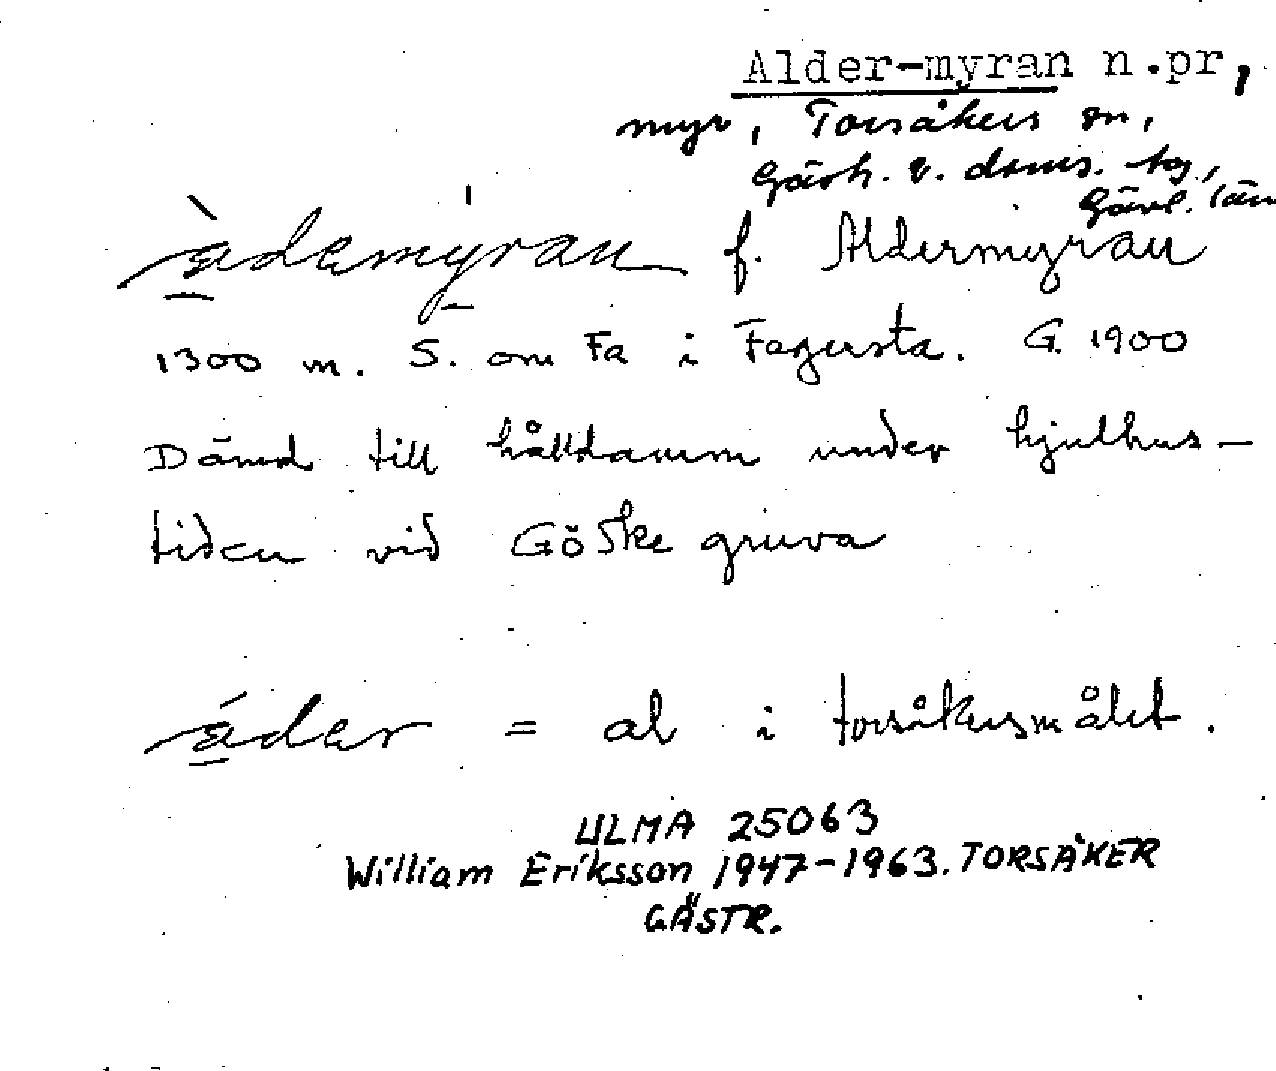 Alder-myran n.pr,
myr, Torsåkers sn,
Gästr. ö. doms. tg,
Gävl. län
àdemýran f. Aldermyran
1300 m. S. om Fa i Fagersta. G. 1900
Dämd till hålldamm under hjulhus-
tiden vid Göske gruva
áder = al i torsåkersmålet.
ULMA 25063
William Eriksson 1947-1963. TORSÅKER
GÄSTR.